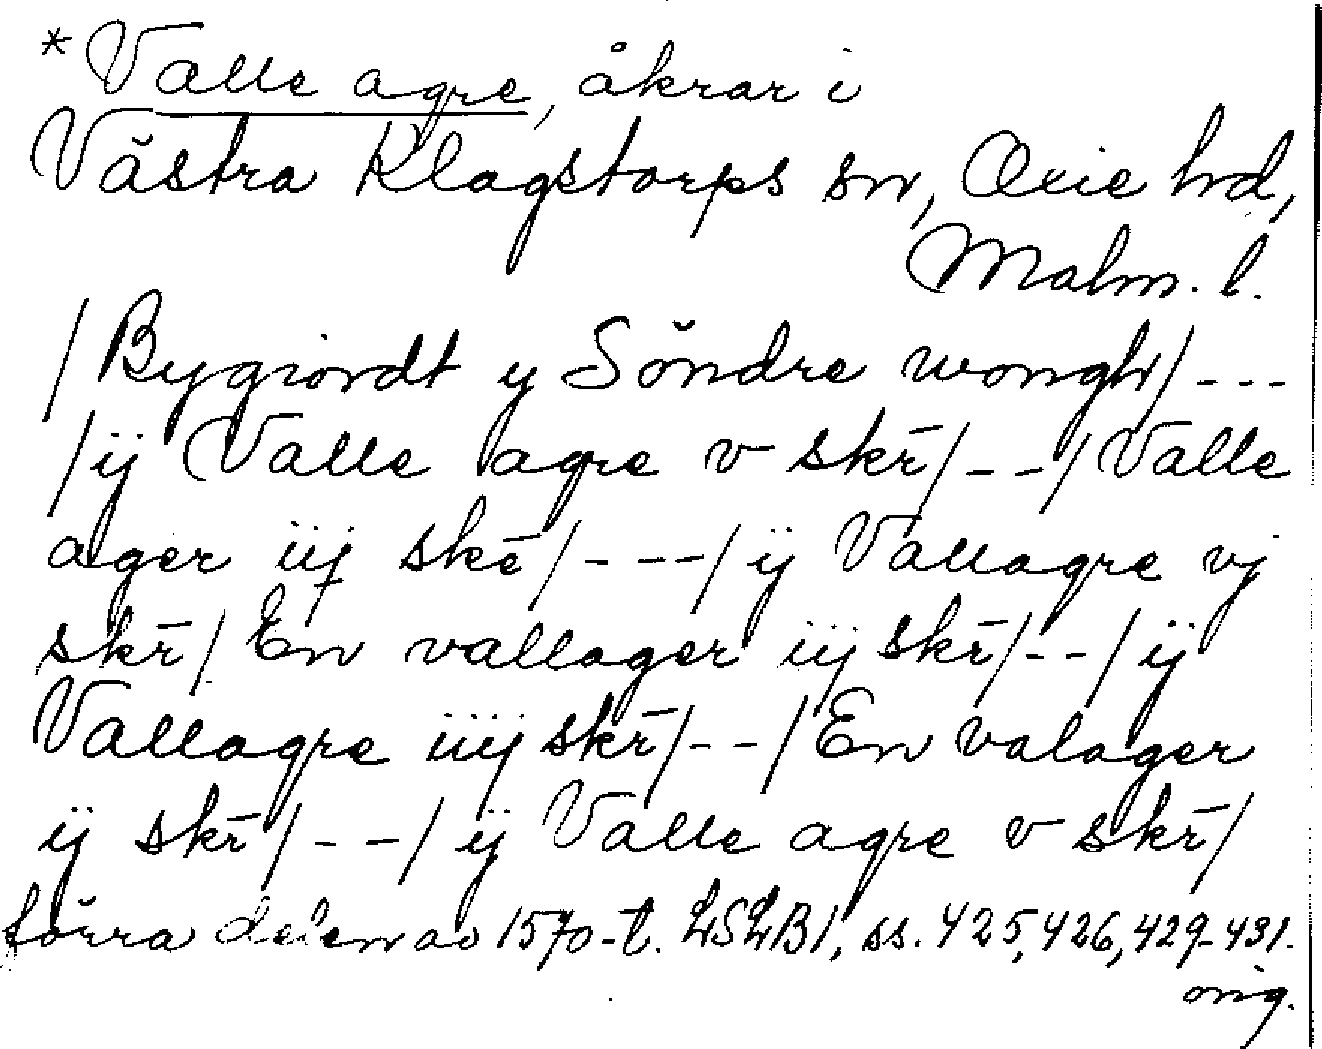 *Valle agre, åkrar i
Västra Klagstorps sn, Oxie hd,
Malm. l.
/Bygiordt y Söndre wongh/---
/ij Valle agre v skr̄/--/Valle
ager iij skr̄/---/ij Vallagre vj
skr̄/ En vallager iij skr̄/--/ij
Vallagre iiij skr̄/--/En valager
ij skr̄/--/ij Valle agre v skr̄/
förra delen av 1570-t. LSLB1, ss. 425, 426, 429-431.
orig.